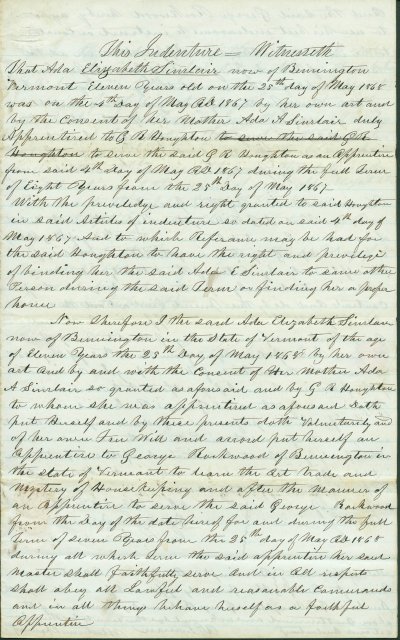 This Indenture = Witnesseth
That Ada Elizabeth Sinclair now of Bennington
Vermont Eleven Years old on the 25th day of May 1868
was on the 4th Day of May AD 1867 by her own act and
by the Consent of her Mother Ada A Sinclair duly
Apprinticed to G R Houghton to serve the said G R
Houghton to serve the said G R Houghton as an Apprentice
from said 4th day of May AD 1867 during the full Term
of Eight Years from the 25th day of May 1867
With the priviledge and right granted to said Houghton
in said Articles of indenture so dated on said 4th day of
May 1867 And to which Referance may be had for
the said Houghton to have the right and privilege
of binding her the said Ada E Sinclair to some other
Person during the said Term or finding her a proper
home
Now Therefore I the said Ada Elizabeth Sinclair
now of Bennington in the State of Vermont of the age
of Eleven Years the 25th Day of May 1868 by her own
act And by and with the Consent of Her Mother Ada
A Sinclair so granted as aforesaid and by G R Houghton
to whom she was apprinticed as aforesaid Doth
put Herself and by These presents doth Voluntarily and
of her own Free Will and accord put herself an
Apprentice to George Rockwood of Bennington in
the State of Vermont to learn the Art trade and
Mystery of Housekeeping and after the Manner of
an Apprentice to serve the said George Rockwood
from the Day of the date hereof for and during the full
Term of seven Years from the 25th day of May AD 1868
during all which Term the said apprentice her said
master shall Faithfully serve And in All respects
shall obey all Lawful and reasonable Commands
and in all things behave herself as a faithful
Apprentice